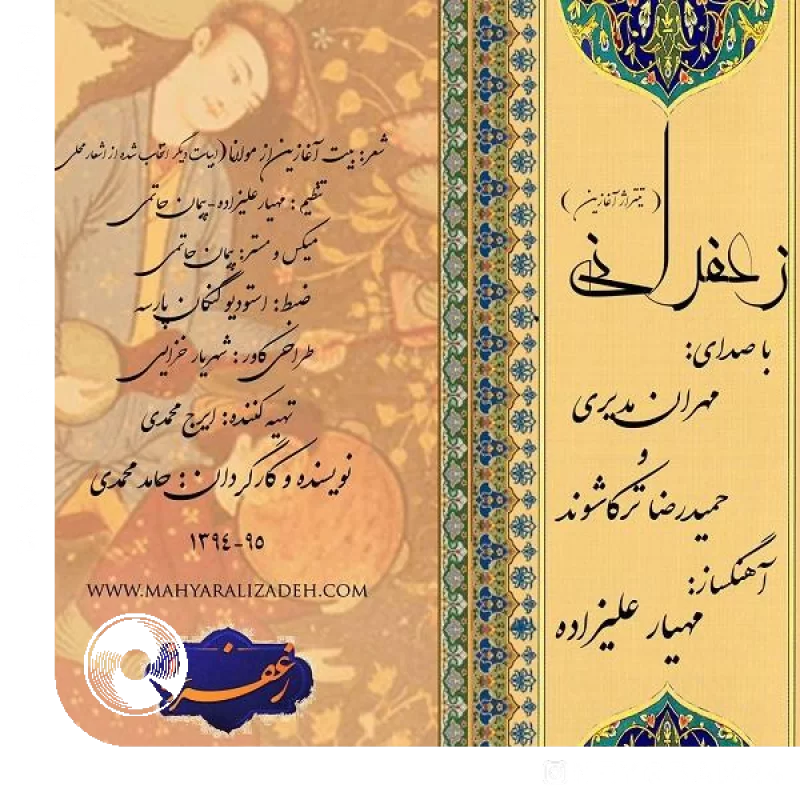 (تیتراژ آغازین)
زعفرانی
با صدای:
مهران مدیری
و
حمیدرضا ترکاشوند
آهنگساز:
مهیار علیزاده
شعر: بیت آغازین از مولانا (ابیات دیگر انتخاب شده از اشعار محلی
تنظیم: مهیار علیزاده - پیمان حاتمی
میکس و مستر: پیمان حاتمی
ضبط: استودیو پارسه
طراحی کاور: شهریار خزایی
تهیه کننده: ایرج محمدی
نویسنده و کارگردان: حامد محمدی
۱۳۹٤-۹۵
WWW.MAHYARALIZADEH.COM